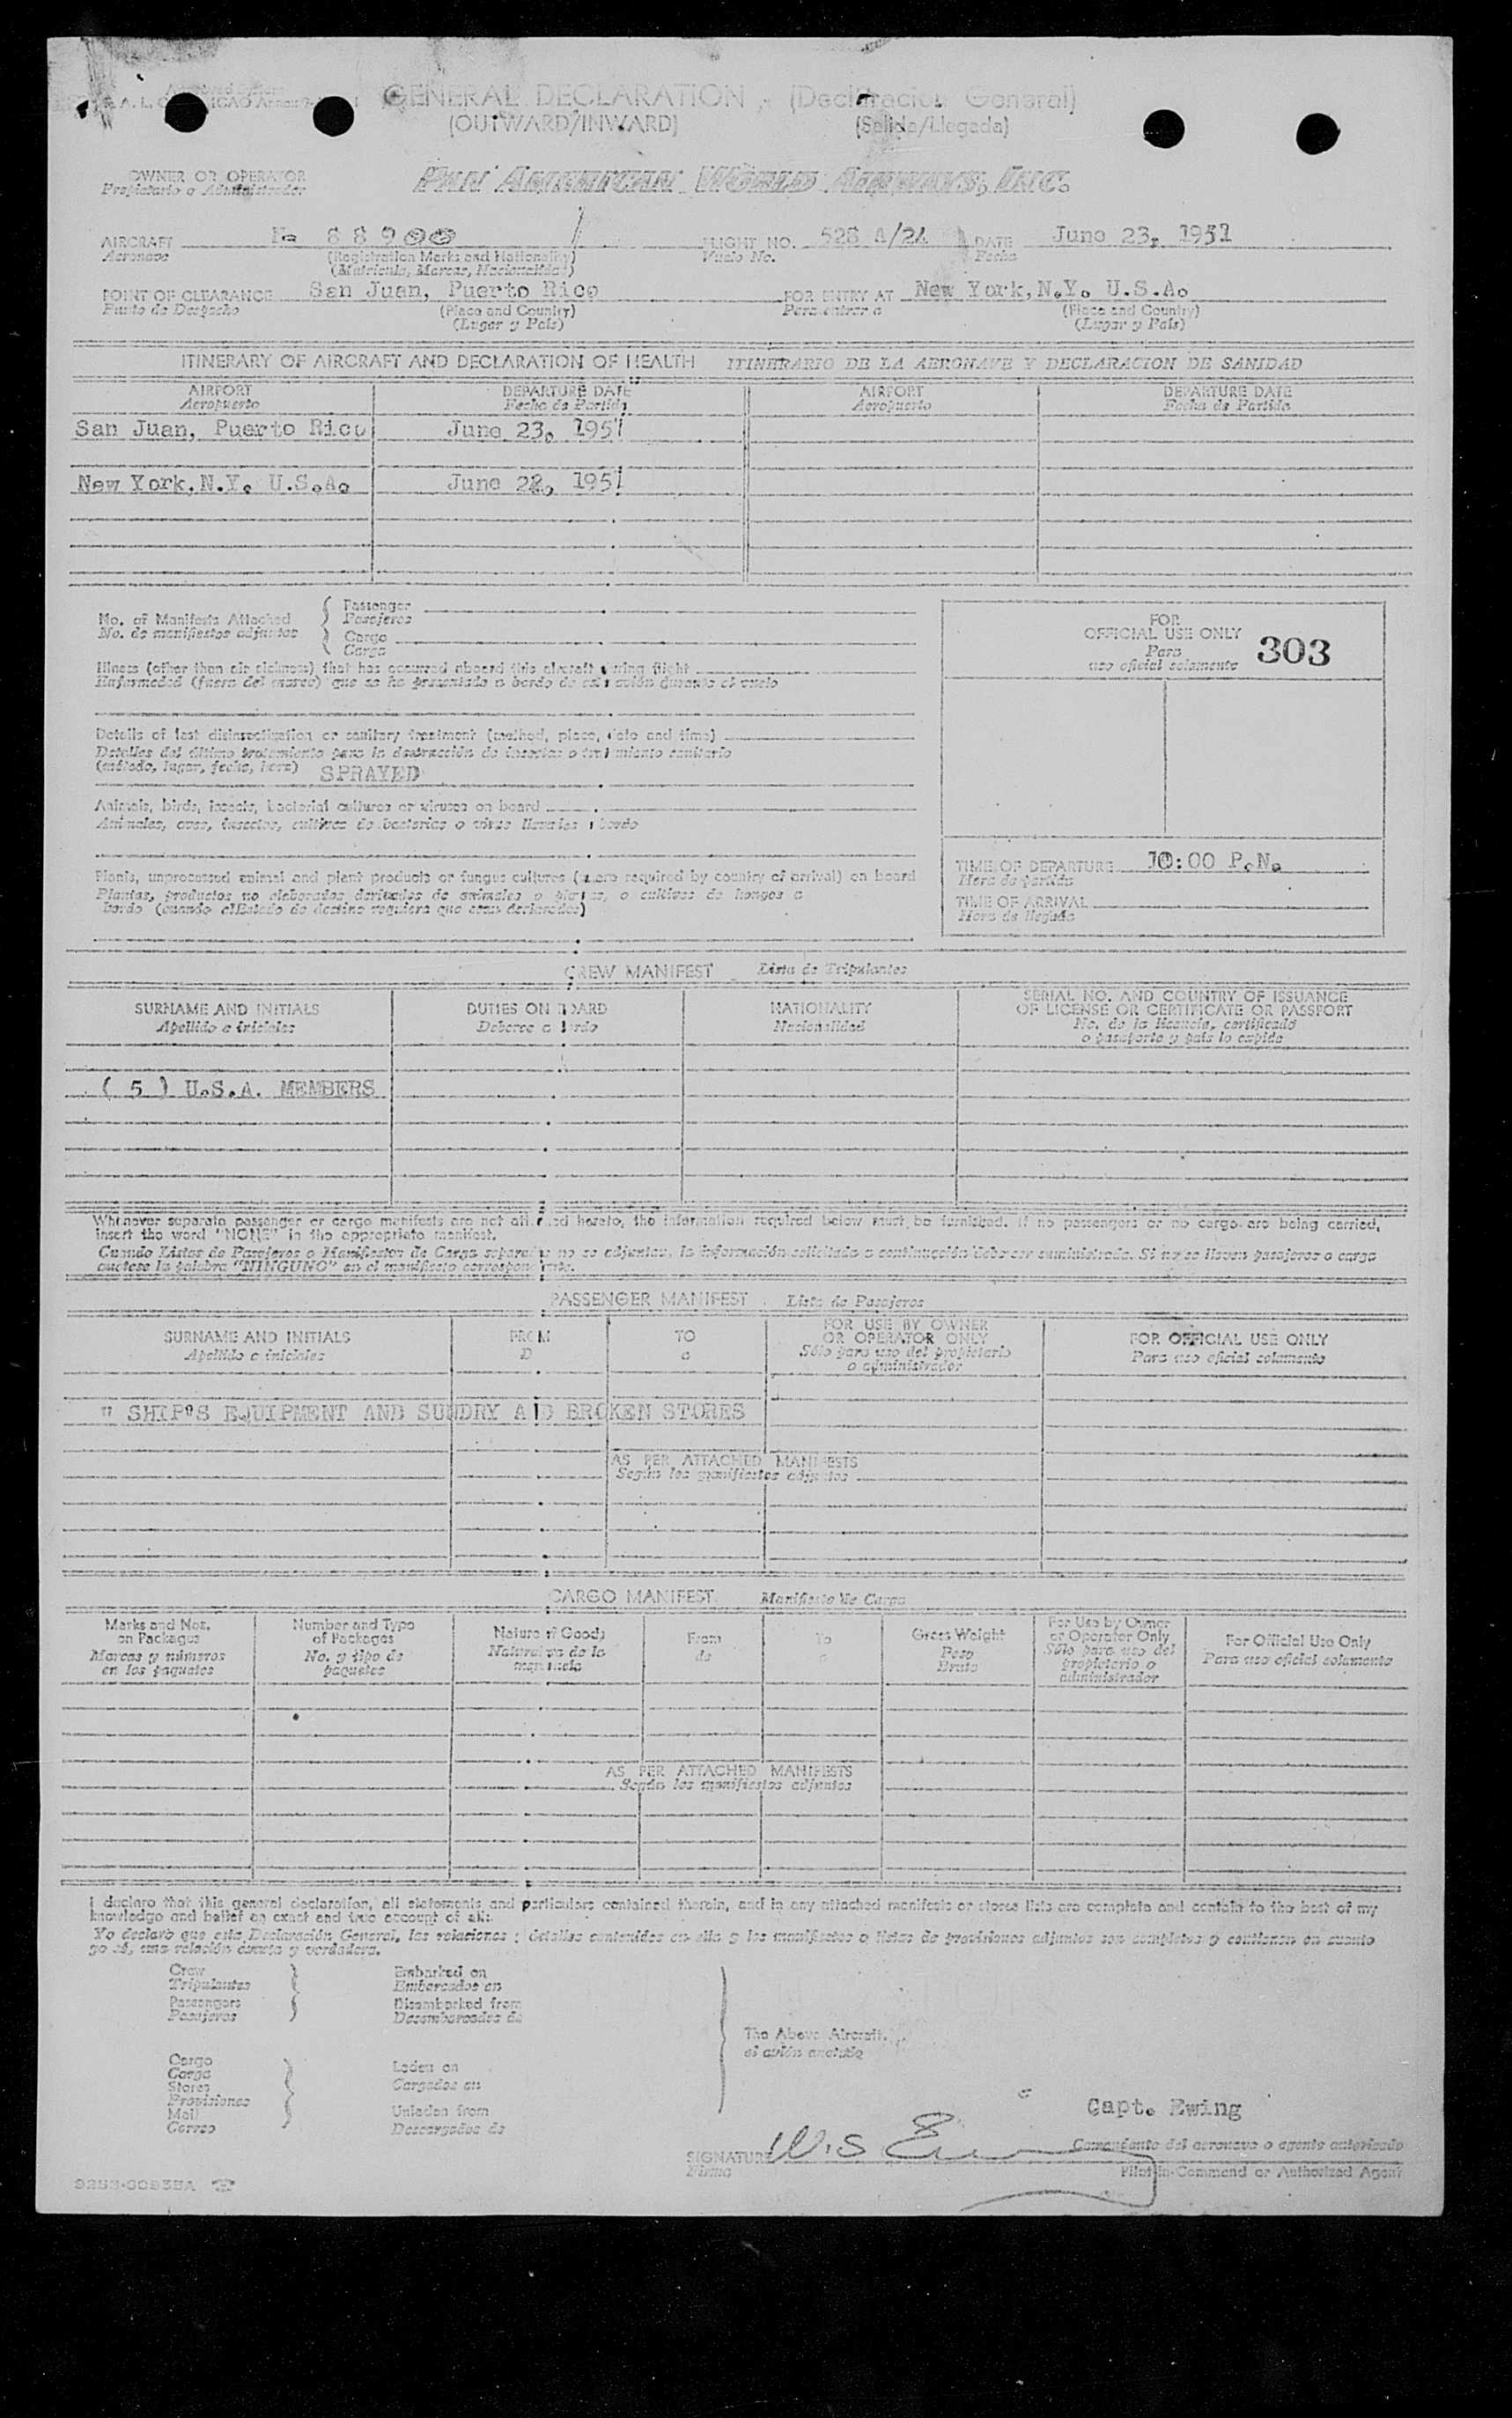 GENERAL DECLARATION (Declaracion General)
(OUTWARD/INWARD) (Salida/Llegada)
OWNER OR OPERATOR
Propietario o Administrador
PAN AMERICAN WORLD AIRWAYS, INC.
AIRCRAFT FLIGHT NO. 528 A/24 DATE June 23, 1951
Aeronave (Registration Marks and Nationality) Vuelo No. Fecha
(Matricula, Marcas, Nacionalidad)
POINT OF CLEARANCE San Juan, Puerto Rico FOR ENTRY AT New York, N.Y. U.S.A.
Punto de Despacho (Place and Country) Para entrar a (Place and Country)
(Lugar y País) (Lugar y País)
ITINERARY OF AIRCRAFT AND DECLARATION OF HEALTH ITINERARIO DE LA AERONAVE Y DECLARACION DE SANIDAD
AIRPORT DEPARTURE DATE AIRPORT DEPARTURE DATE
Aeropuerto Fecha de Partida Aeropuerto Fecha de Partida
San Juan, Puerto Rico June 23, 1951
New York, N.Y. U.S.A. June 22, 1951
No. of Manifests Attached Passenger
No. de manifiestos adjuntos Pasajeros
Cargo
Carga
FOR
OFFICIAL USE ONLY
Para
uso oficial solamente
303
Illness (other than air sickness) that has occurred aboard this aircraft during flight
Enfermedad (fuera del mareo) que se ha presentado a bordo de este avión durante el vuelo
Details of last disinsectization or sanitary treatment (method, place, date and time)
Detalles del último tratamiento para la destrucción de insectos o tratamiento sanitario
(método, lugar, fecha, hora) SPRAYED
Animals, birds, insects, bacterial cultures or viruses on board
Animales, aves, insectos, cultivos de bacterias o virus llevados a bordo
Plants, unprocessed animal and plant products or fungus cultures (where required by country of arrival) on board
Plantas, productos no elaborados derivados de animales o plantas, o cultivos de hongos a
bordo (cuando el Estado de destino requiera que sean declarados)
TIME OF DEPARTURE 10:00 P.M.
Hora de partida
TIME OF ARRIVAL
Hora de llegada
CREW MANIFEST Lista de Tripulantes
SURNAME AND INITIALS DUTIES ON BOARD NATIONALITY SERIAL NO. AND COUNTRY OF ISSUANCE
OF LICENSE OR CERTIFICATE OR PASSPORT
Apellido e iniciales Deberes a bordo Nacionalidad No. de la licencia, certificado
o pasaporte y país lo expide
( 5 ) U.S.A. MEMBERS
Whenever separate passenger or cargo manifests are not attached hereto, the information required below must be furnished. If no passengers or no cargo are being carried,
insert the word "NONE" in the appropriate manifest.
Cuando Listas de Pasajeros o Manifiestos de Carga separados no se adjuntan, la información solicitada a continuación debe ser suministrada. Si no se llevan pasajeros o carga
anótese la palabra "NINGUNO" en el manifiesto correspondiente.
PASSENGER MANIFEST Lista de Pasajeros
SURNAME AND INITIALS FROM TO FOR USE BY OWNER
OR OPERATOR ONLY FOR OFFICIAL USE ONLY
Apellido e iniciales D a Sólo para uso del propietario
o administrador Para uso oficial solamente
" SHIP'S EQUIPMENT AND SUNDRY AND BROKEN STORES
AS PER ATTACHED MANIFESTS
Según los manifiestos adjuntos
CARGO MANIFEST Manifiesto de Carga
Marks and Nos.
on Packages
Marcas y números
en los paquetes
Number and Type
of Packages
No. y tipo de
paquetes
Nature of Goods
Naturaleza de la
mercancía
From
de
To
a
Gross Weight
Peso
Bruto
For Use by Owner
or Operator Only
Sólo para uso del
propietario o
administrador
For Official Use Only
Para uso oficial solamente
AS PER ATTACHED MANIFESTS
Según los manifiestos adjuntos
I declare that this general declaration, all statements and particulars contained therein, and in any attached manifests or stores lists are complete and contain to the best of my
knowledge and belief an exact and true account of all:
Yo declaro que esta Declaración General, las relaciones y detalles contenidos en ella y los manifiestos o listas de provisiones adjuntos son completos y contienen en cuanto
yo sé, una relación exacta y verdadera.
Crew Embarked on
Tripulantes Embarcados en
Passengers Disembarked from
Pasajeros Desembarcados de
The Above Aircraft.
el avión
Cargo
Carga
Stores
Provisiones
Mail
Correo
Laden on
Cargados en
Unladen from
Descargados de
Capt. Ewing
SIGNATURE W.S Ewing
Firma
Comandante del aeronave o agente autorizado
Pilot-in-Command or Authorized Agent